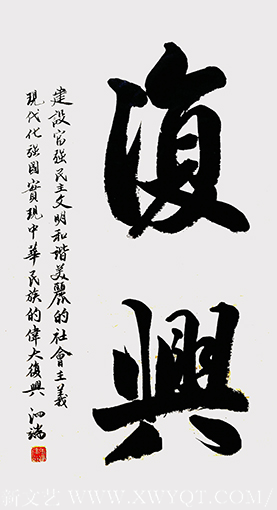 復興
建設富强民主文明和谐美麗的社會主義
現代化强國實現中華民族的偉大復興 泗瑞
新文艺 WWW.XWYQT.COM